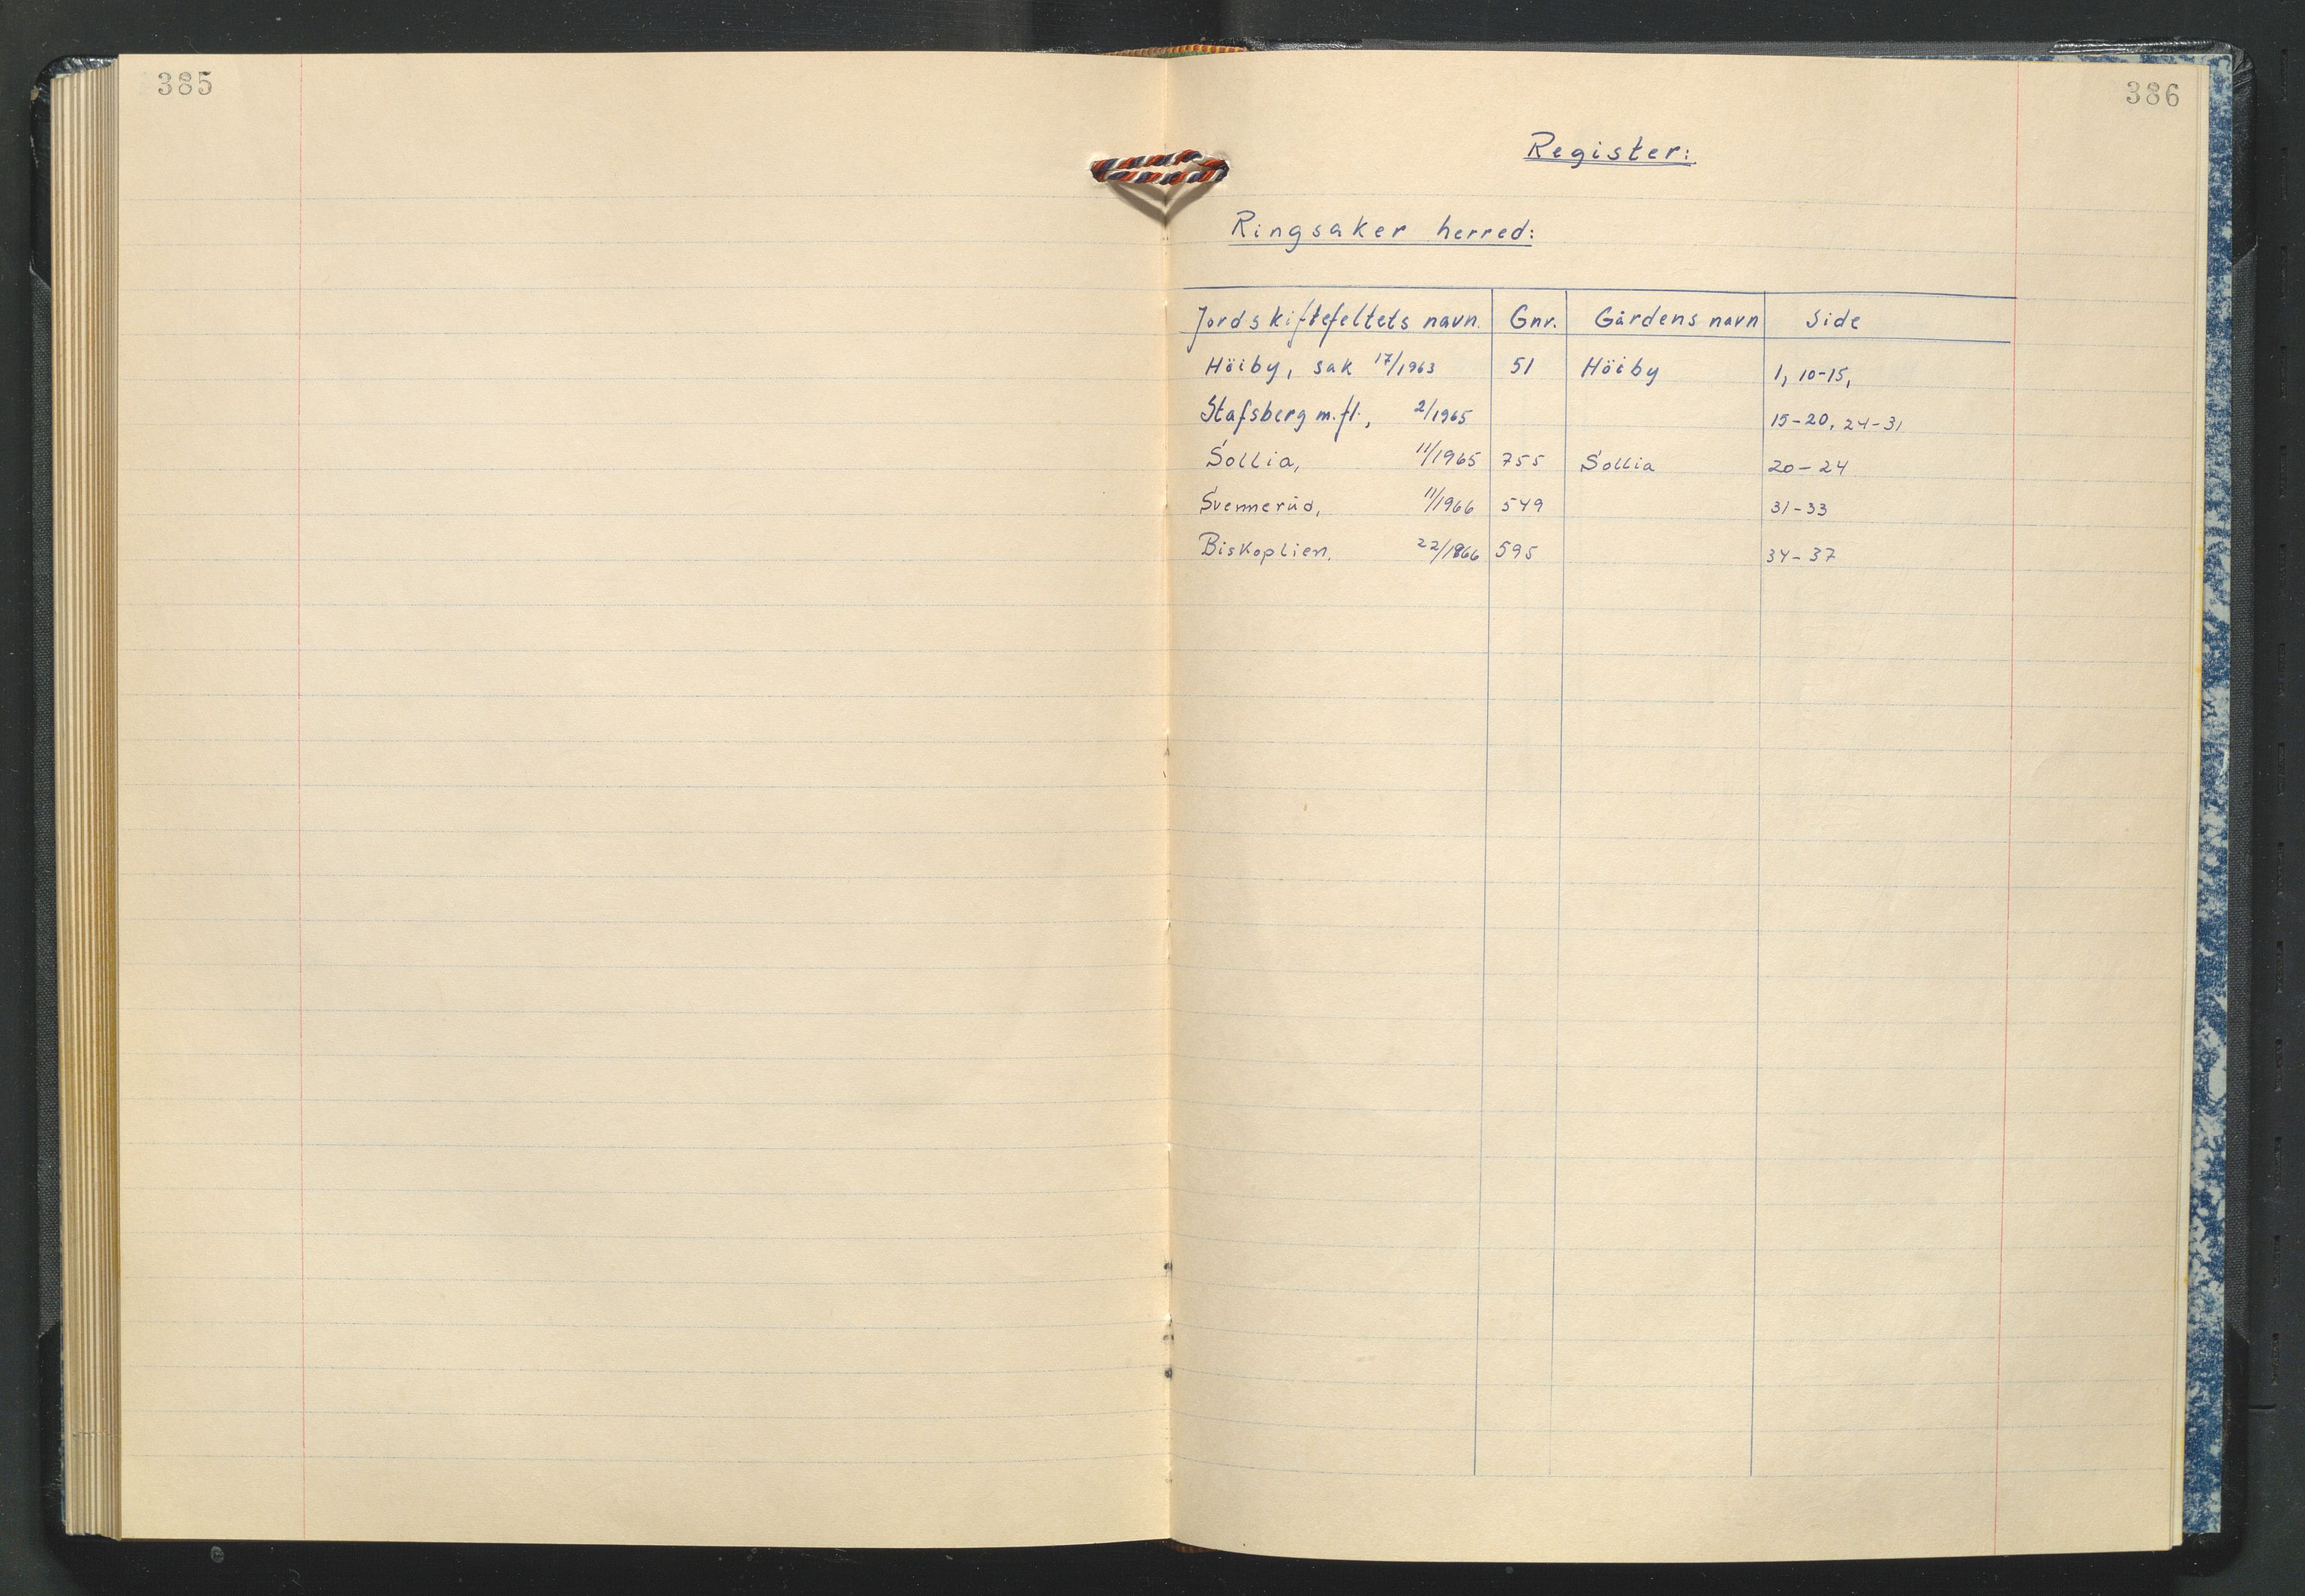 385
386
Register:
Ringsaker herred:
Jordskiftefeltets navn. Gnr. Gårdens navn Side
Höiby, sak 17/1963 51 Höiby 1, 10-15,
Stafsberg m.fl., 2/1965 15-20, 24-31
Sollia, 11/1965 755 Sollia 20-24
Svennerud, 11/1966 549 31-33
Biskoplien, 22/1966 595 34-37